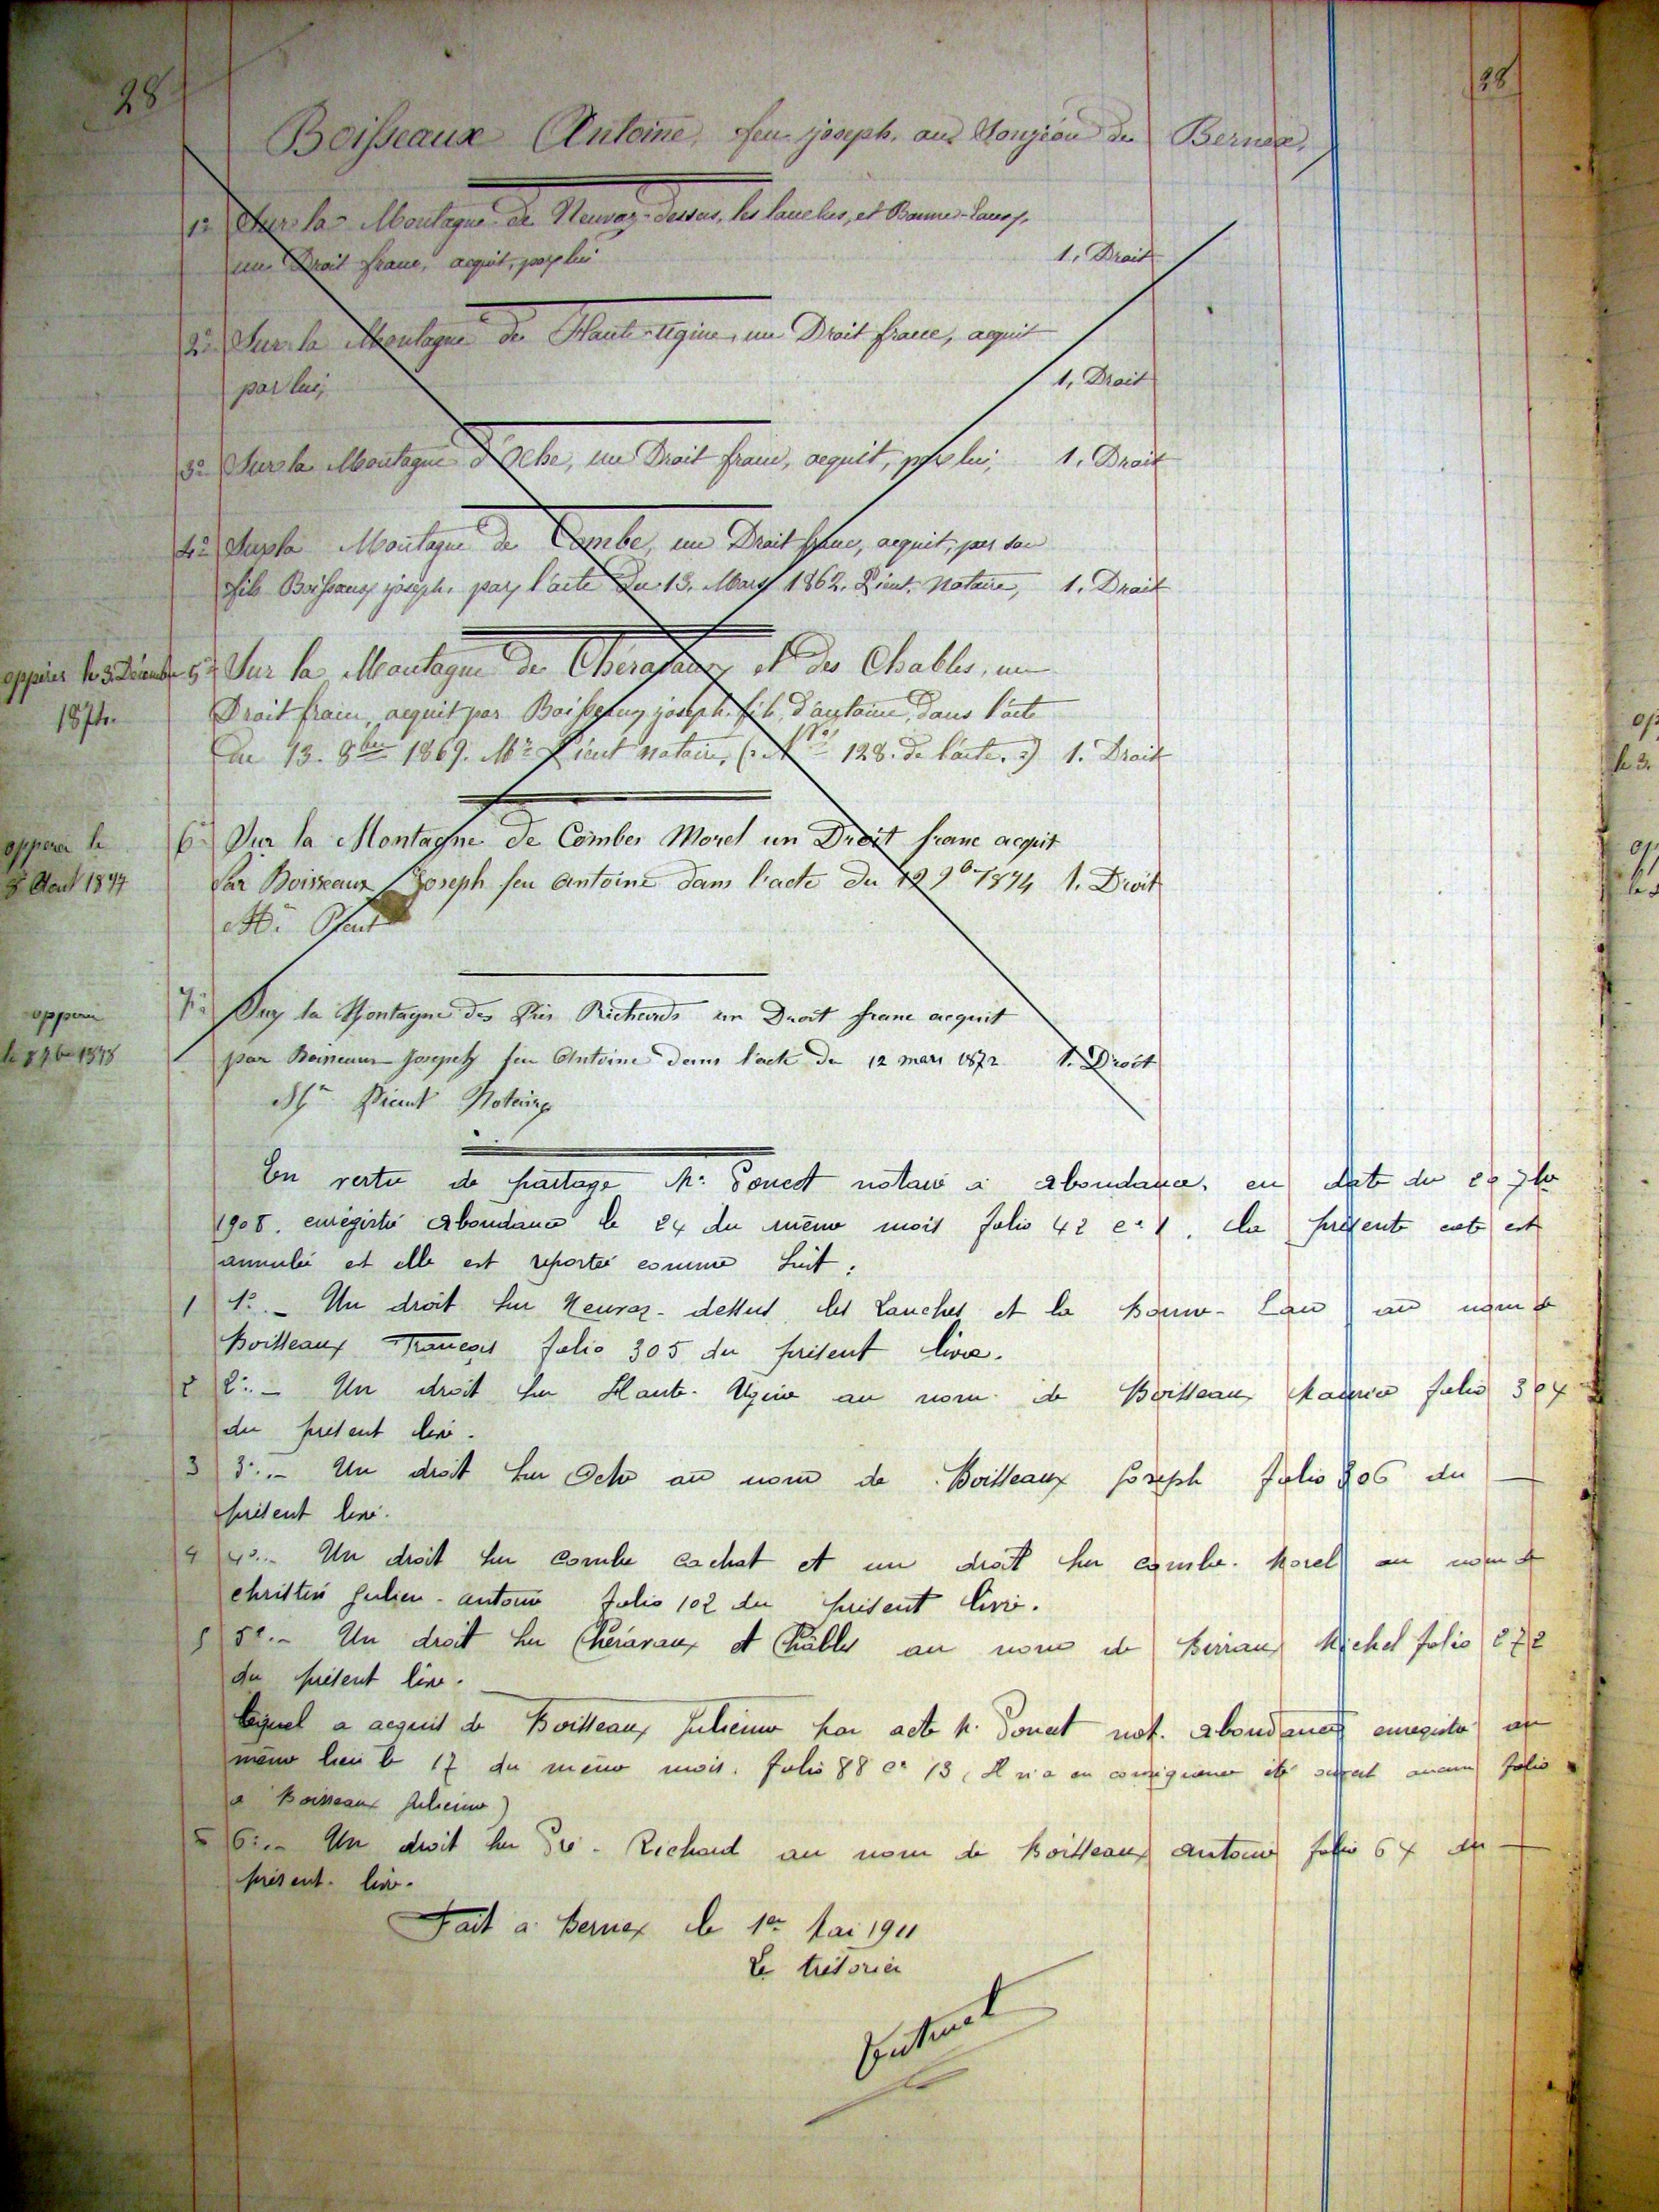 28
28
Boisseaux Antoine, feu joseph, au de Bernex,
1º Sur la Montagne de Neuvaz-dessus, les lanches, et Baume-Lancy,
un Droit franc, acquit, par lui 1, Droit
2º Sur la Montagne de Haute-Ugine, un Droit franc, acquit
par lui, 1, Droit
3º Sur la Montagne d'Oche, un Droit franc, acquit, par lui, 1, Droit
4º Sur la Montagne de Combe, un Droit franc, acquit, par son
fils Boisseaux joseph, par l'acte du 13, Mars 1862, Pient, Notaire, 1, Droit
oppérer le 3 Décembre 1874.
5º Sur la Montagne de et des Chables, un
Droit franc, acquit par Boisseaux joseph fils d'antoine, dans l'acte
du 13. 8bre 1869. Me Pient notaire, (: Nº 128. de l'acte. :) 1. Droit
opperer le
8 Aout 1877
6º Sur la Montagne de Combes Morel un Droit franc acquit
Par Boisseaux Joseph feu Antoine dans l'acte du 19 9bre 1874 1. Droit
Me Pient
opperer
le 8 9bre 1878
7º Sur la Montagne des Prés Richards un Droit franc acquit
par Boisseaux Joseph feu Antoine dans l'acte du 12 mars 1872 1. Droit
Me Pient Notaire
En vertu de partage Me notaire à abondance, en date du 20 7bre
1908. enrégistré abondance le 24 du même mois folio 42 ce 1, la présente cote est
annulée et elle est reportée comme suit :
1 1º.- Un droit sur Neuvaz-dessus, les Lanches et la Baume-Lan au nom de
Boisseaux François folio 305 du présent livre.
2 2º.- Un droit sur Haute-Ugine au nom de Boisseaux Maurice folio 304
du présent livre.
3 3º.- Un droit sur Oche au nom de Boisseaux Joseph folio 306 du
présent livre.
4 4º.- Un droit sur combe cachat et un droit sur combe-Morel au nom de
christin Julien-antoine folio 102 du présent livre.
5 5º.- Un droit sur Chéravaux et Châbles au nom de Birraux Michel folio 272
du présent livre.
lequel a acquis de Boisseaux Julienne par acte Me not. abondance enregistré au
même lieu le 17 du même mois. folio 88 ce 13, (Il n'a en conséquence été ouvert aucun folio
à Boisseaux Julienne)
6º.- Un droit sur Pré-Richard au nom de Boisseaux Antoine folio 64 du
présent livre.
Fait a Bernex le 1er Mai 1911
Le trésorier